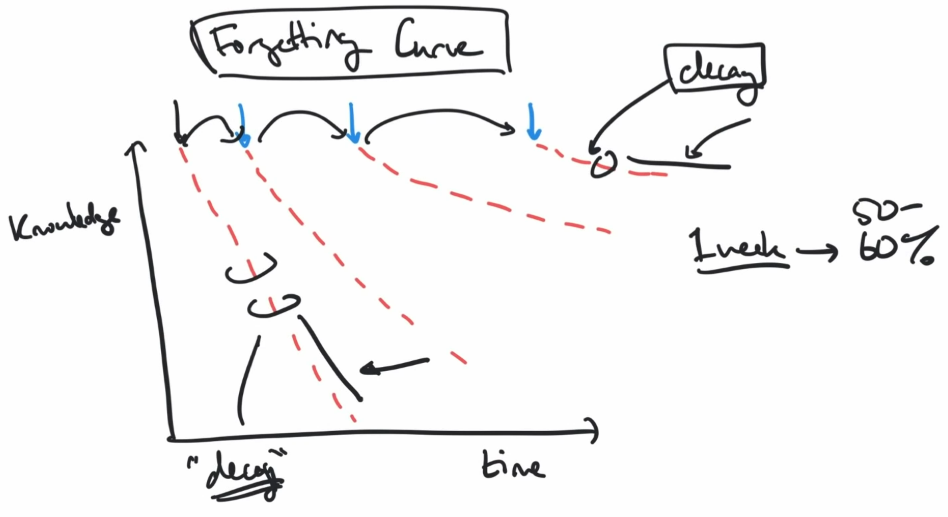 Forgetting Curve
decay
Knowledge
1 week → 50-
60%
"decay"
time